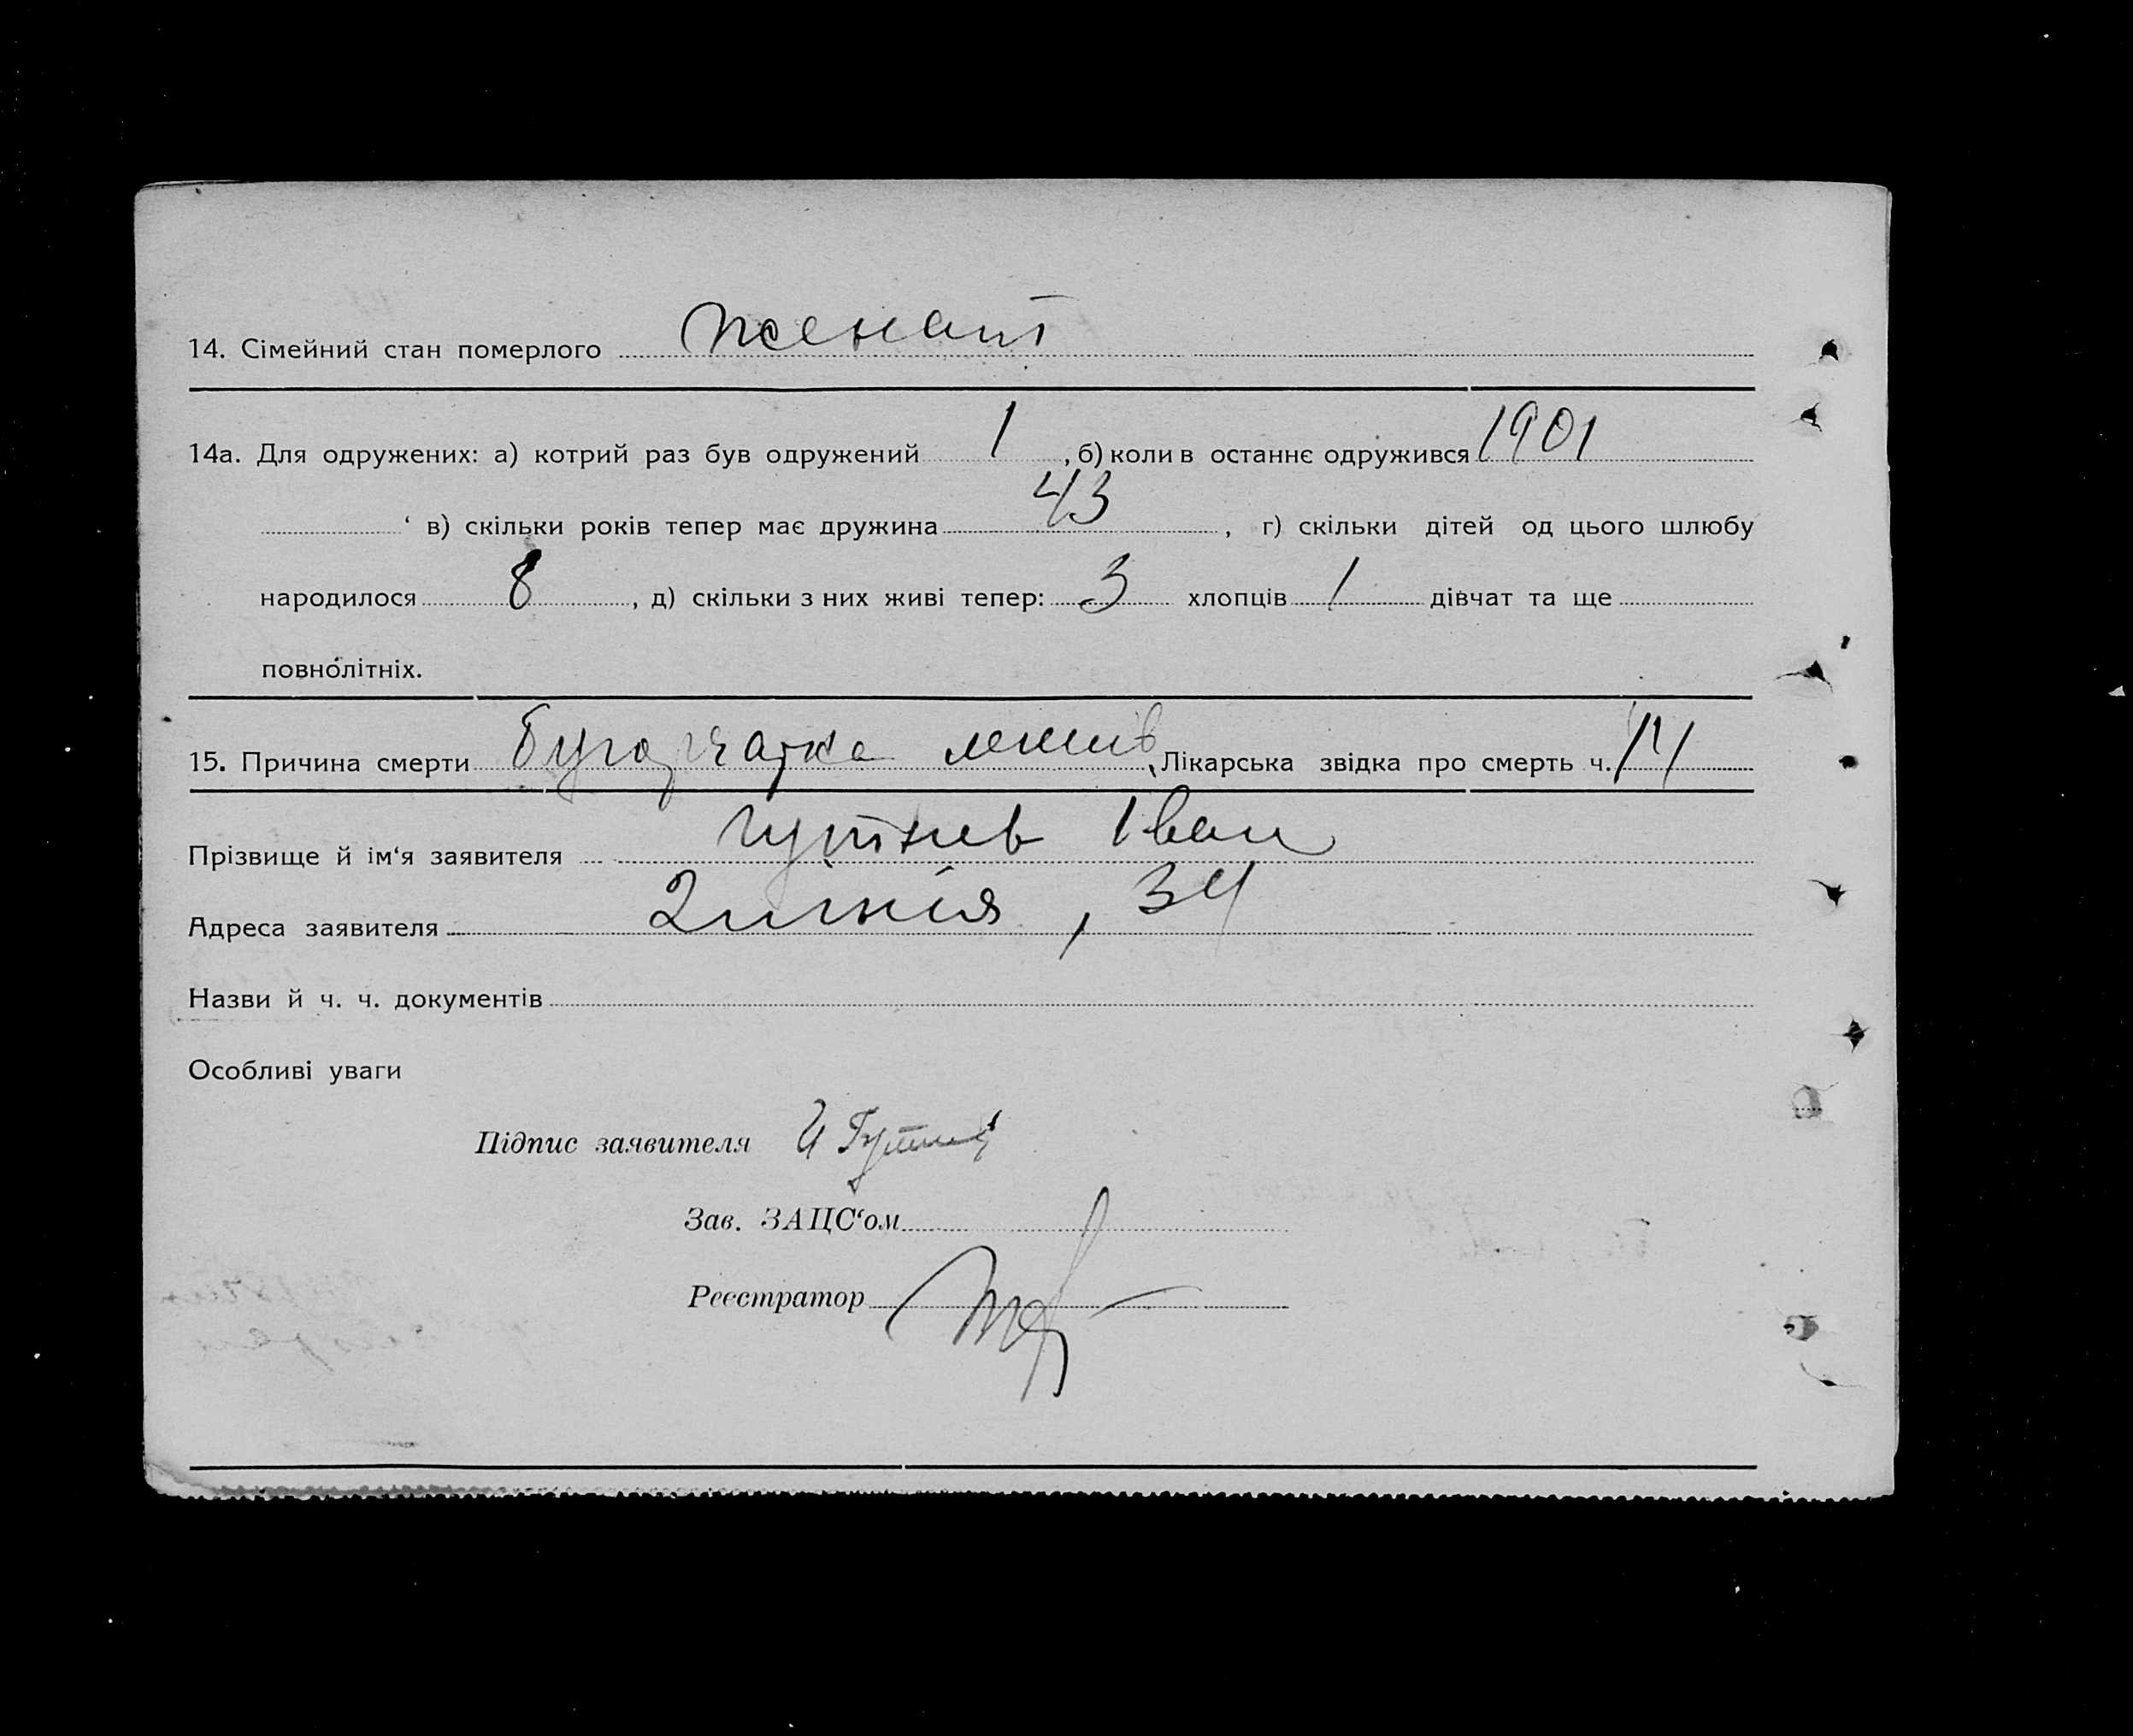 14. Сімейний стан померлого женат
14а. Для одружених: а) котрий раз був одружений 1, б) коли в останнє одружився 1901
в) скільки років тепер має дружина 43, г) скільки дітей од цього шлюбу
народилося 8, д) скільки з них живі тепер: 3 хлопців 1 дівчат та ще
повнолітніх.
15. Причина смерти Бугорчатка легенів, Лікарська звідка про смерть ч.
Прізвище й ім‘я заявителя Гутнев Іван
Адреса заявителя 2 линія, 34
Назви й ч. ч. документів
Особливі уваги
Підпис заявителя
Зав. ЗАЦС‘ом
Реєстратор